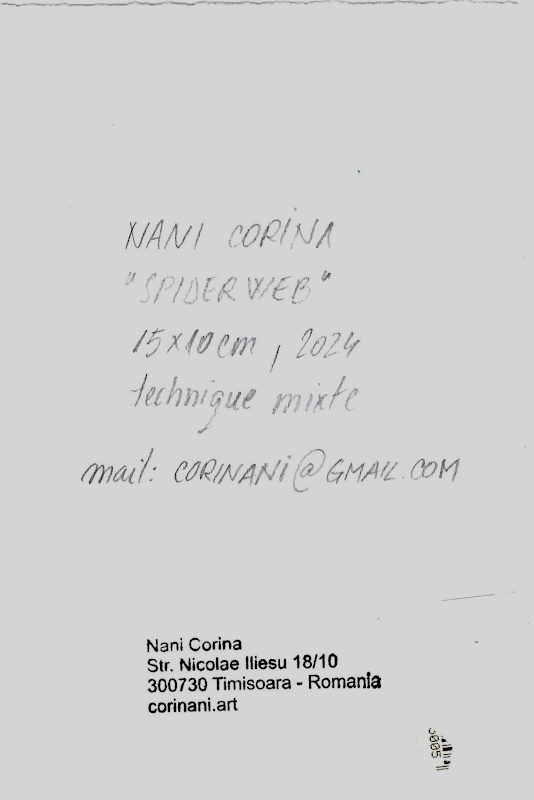 NANI CORINA
"SPIDERWEB"
15x10cm, 2024
technique mixte
mail: CORINANi@GMAIL.COM
Nani Corina
Str. Nicolae Iliesu 18/10
300730 Timisoara - Romania
corinani.art